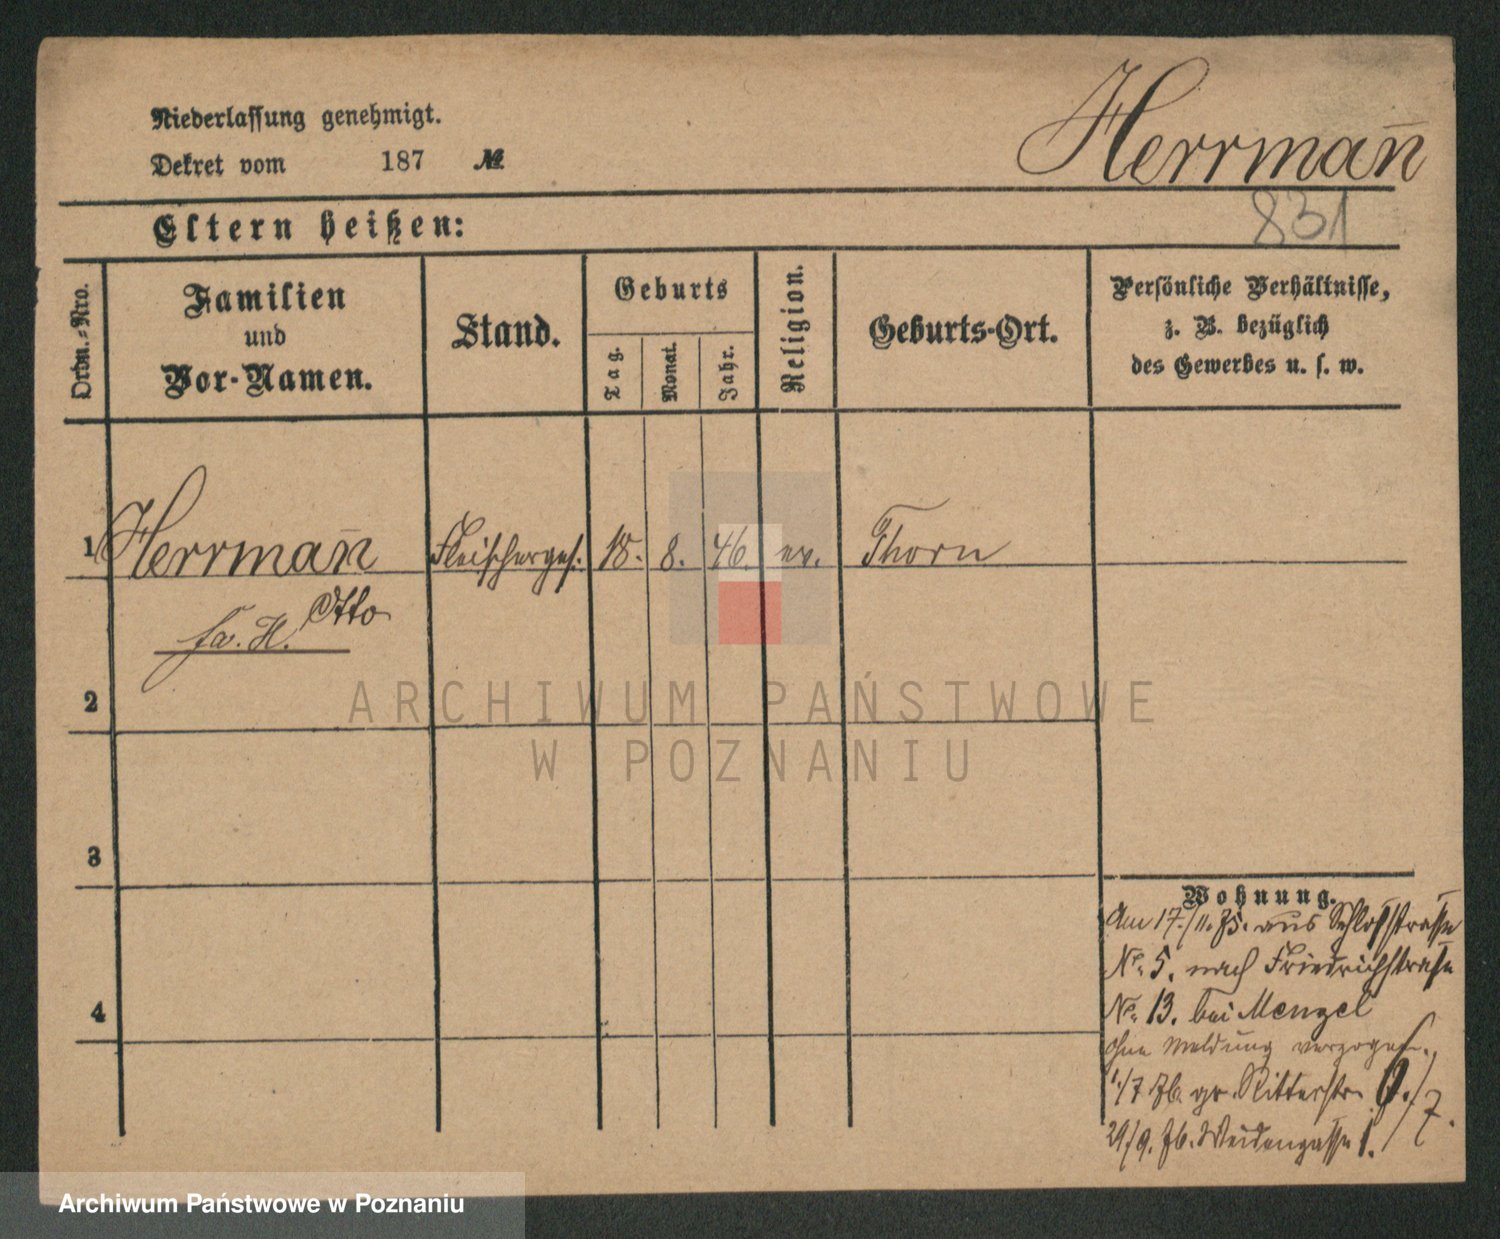 Niederlassung genehmigt.
Dekret vom 187 №
Herrman̄
831
Eltern heißen:
Ordn.-Nro.
Familien
und
Vor-Namen.
Stand.
Geburts
Tag.
Monat.
Jahr.
Religion.
Geburts-Ort.
Persönliche Verhältnisse,
z. B. bezüglich
des Gewerbes u. s. w.
1 Herrman̄ Fleischerges. 18. 8. 46. ev. Thorn
Otto
fr. H.
2
ARCHIWUM PAŃSTWOWE
W POZNANIU
3
Wohnung.
Am 17./11. 75. aus Schloßstrasse
No. 5. nach Friedrichstrasse
No. 13. bei Menzel
4
ohne Meldung verzogen.
1./7 76. gr. Ritterstr.
/7.
29/9. 76. Weidengasse 1.
Archiwum Państwowe w Poznaniu